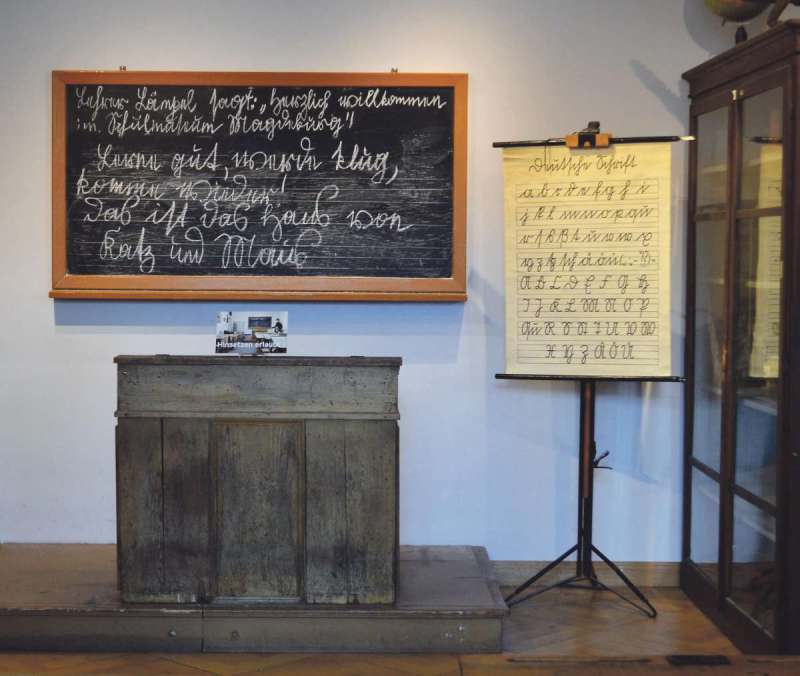 Lehrer Lämpel sagt: „Herzlich willkommen
im Schulmuseum Magdeburg"!
Lerne gut, werde klug,
komme wieder!
Das ist das Haus von
Katz und Maus
Hinsetzen erlaubt
Deutsche Schrift
a b c d e f g h i
j k l m n o p qu
r ſ s ß t u v w x
y z tz sch ä ö ü
A B C D E F G H
I J K L M N O P
Qu R S St T U V W
X Y Z Ä Ö Ü